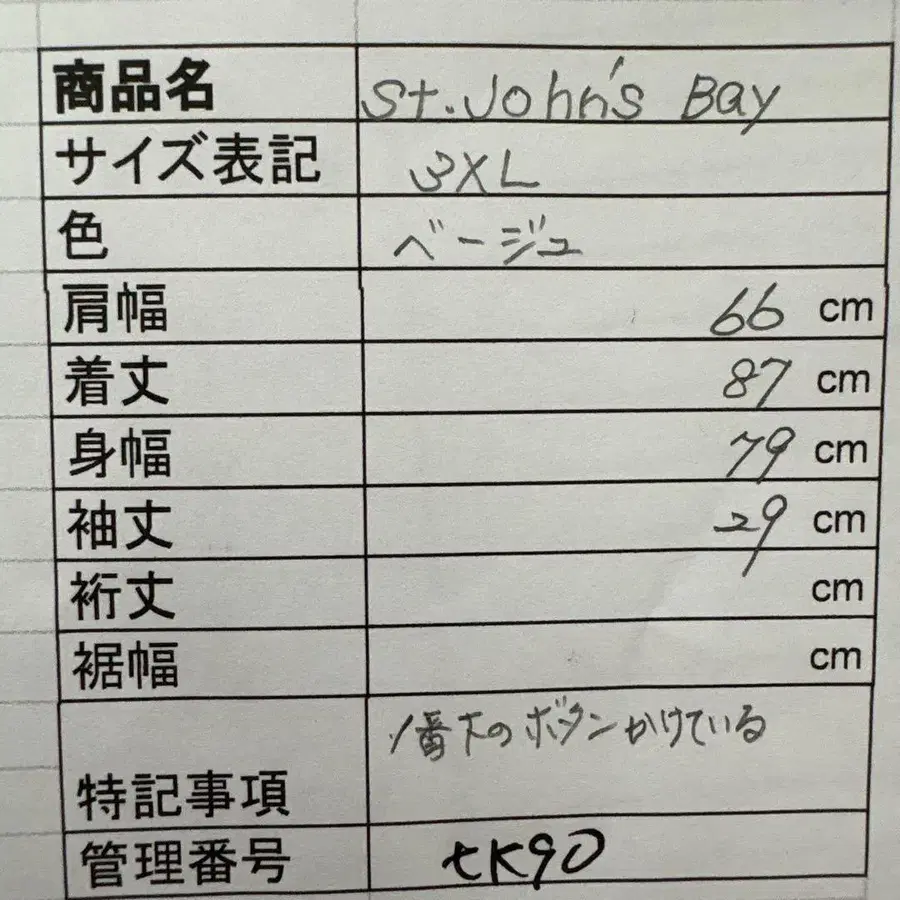 商品名 St.John's Bay
サイズ表記 3XL
色 ベージュ
肩幅 66 cm
着丈 87 cm
身幅 79 cm
袖丈 29 cm
裄丈 cm
裾幅 cm
特記事項 1番下のボタンかけている
管理番号 tK90